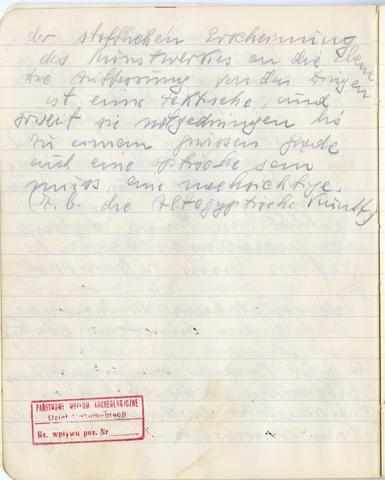 der stofflichen Erscheinung
des Kunstwerkes an die Eben
Die Auffassung von den Dingen
ist eine taktische, und
soweit sie notgedrungen bis
zu einem gewissen Grade
auch eine optische sein
muss, eine nachsichtige.
(z. b. die Altegyptische Kunst)
PAŃSTWOWE MUZEUM ARCHEOLOGICZNE
Dział Dokumentacji
Ks. wpływu poz. Nr